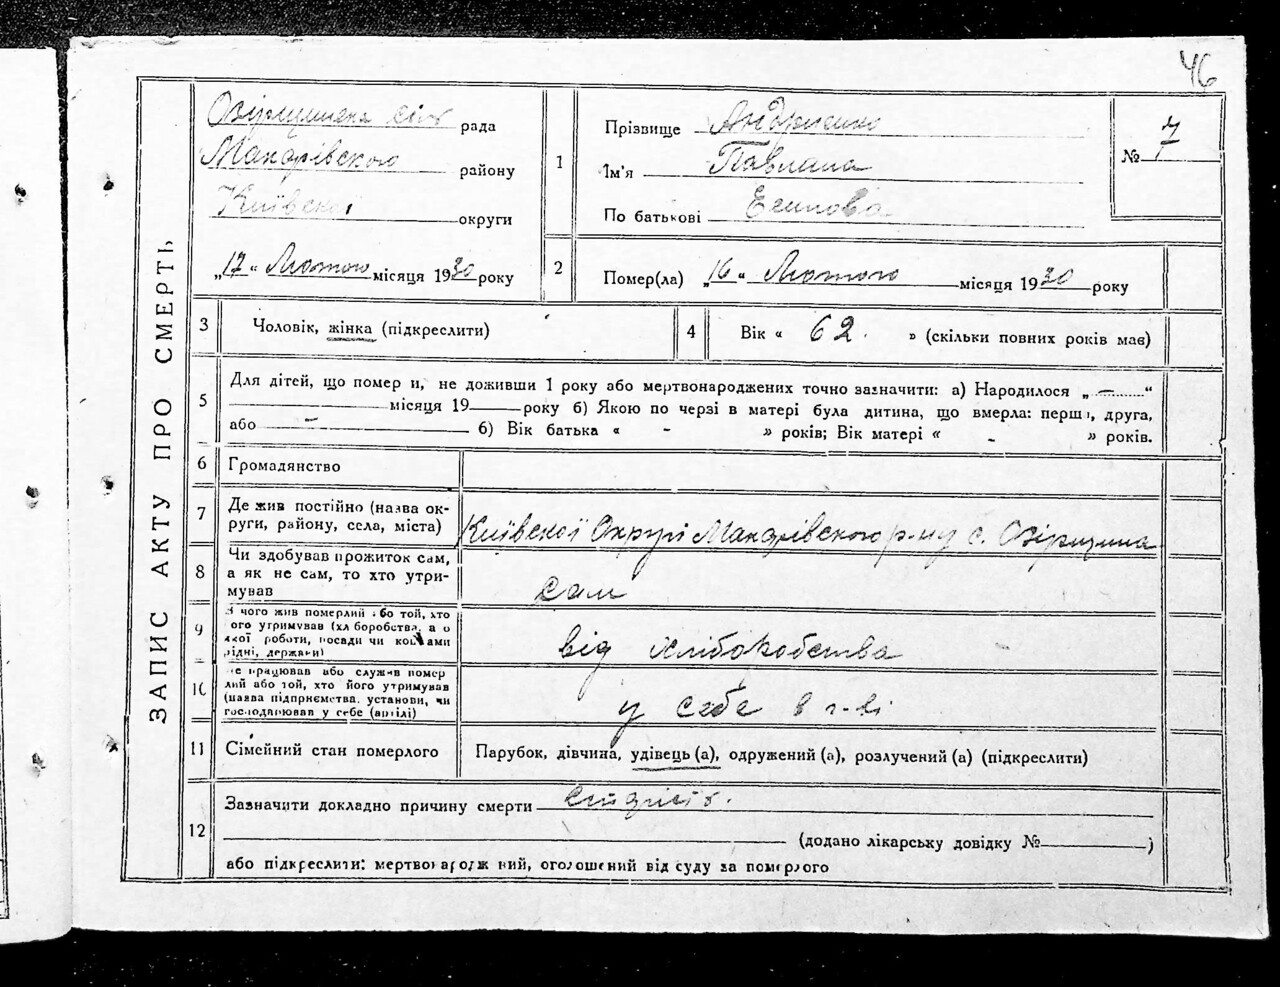 46
ЗАПИС АКТУ ПРО СМЕРТЬ
рада
Макарівского району
Київскої округи
„17“ Лютого місяця 1930 року
1
Прізвище Андрієнко
Ім'я
По батькові
№ 7
2
Помер(ла) „16“ Лютого місяця 1930 року
3
Чоловік, жінка (підкреслити)
4
Вік « 62. » (скільки повних років має)
5
Для дітей, що помер и, не доживши 1 року або мертвонароджених точно зазначити: а) Народилося „ — “
місяця 19 року б) Якою по черзі в матері була дитина, що вмерла: перша, друга,
або — 6) Вік батька « - » років; Вік матері « - » років.
6
Громадянство
7
Де жив постійно (назва ок-
руги, району, села, міста)
Київскої Округі Макарівского р-ну с.
8
Чи здобував прожиток сам,
а як не сам, то хто утри-
мував
сам
9
З чого жив померлий або той, хто
ого утримував (хл боробства, а о
якої роботи, посади чи коштами
рідні, держави)
від
10
де працював або служив помер
лий або той, хто його утримував
(назва підприємства, установи, чи
господарював у себе (артілі)
у себе в г-ві
11
Сімейний стан померлого
Парубок, дівчина, удівець (а), одружений (а), розлучений (а) (підкреслити)
12
Зазначити докладно причину смерти старість.
(додано лікарську довідку № )
або підкреслити: мертвонароджений, оголошений від суду за померлого